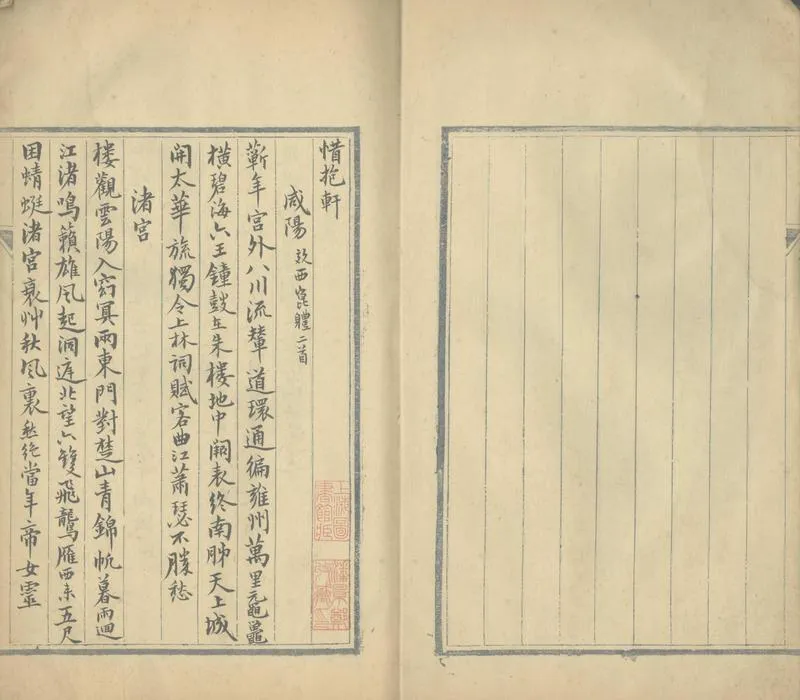 惜抱軒
咸陽 效西崑體二首
蘄年宮外八川流輦道環通徧雍州萬里黿鼉
橫碧海六王鐘鼓在朱樓地中闕表終南胏天上城
開太華旒獨令上林詞賦客曲江蕭瑟不勝愁
渚宮
樓觀雲陽入窈冥兩東門對楚山青錦帆暮雨迴
江渚鳴籟雄風起洞庭北望六雙飛鸗雁西來五尺
困蜻蜓渚宮衰艸秋風裏愁絕當年帝女靈
上海圖
書館藏